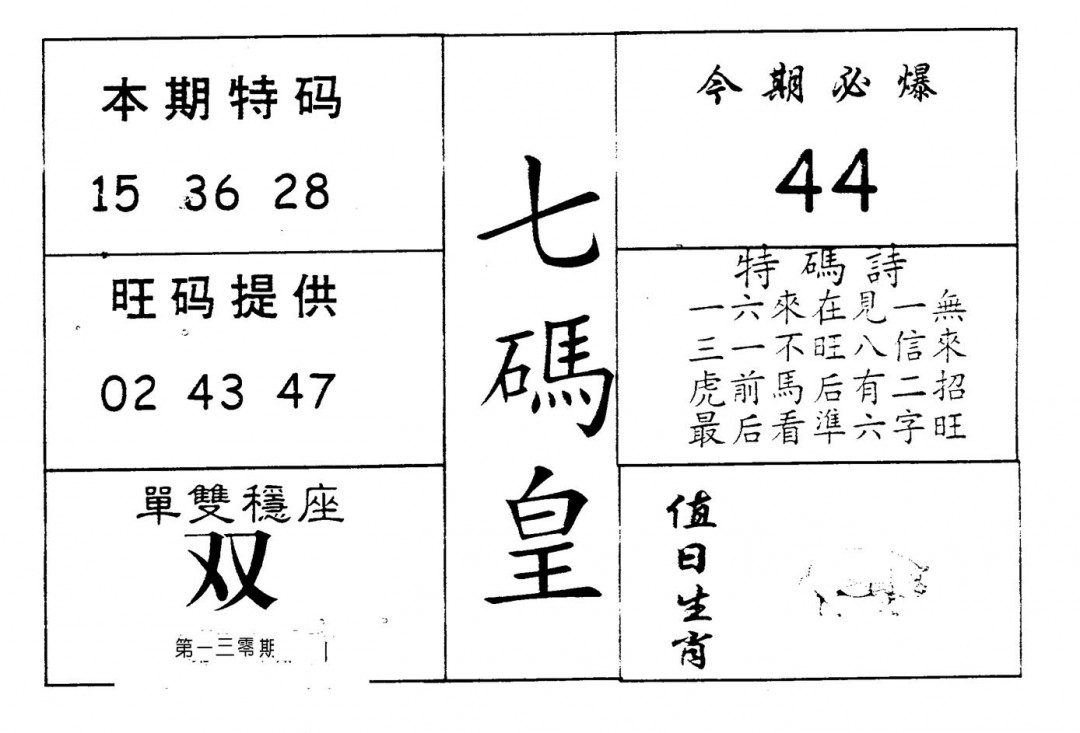 本期特码
15 36 28
旺码提供
02 43 47
單雙穩座
双
第一三零期
七碼皇
今期必爆
44
特碼詩
一六來在見一無
三一不旺八信來
虎前馬后有二招
最后看準六字旺
值日生肖